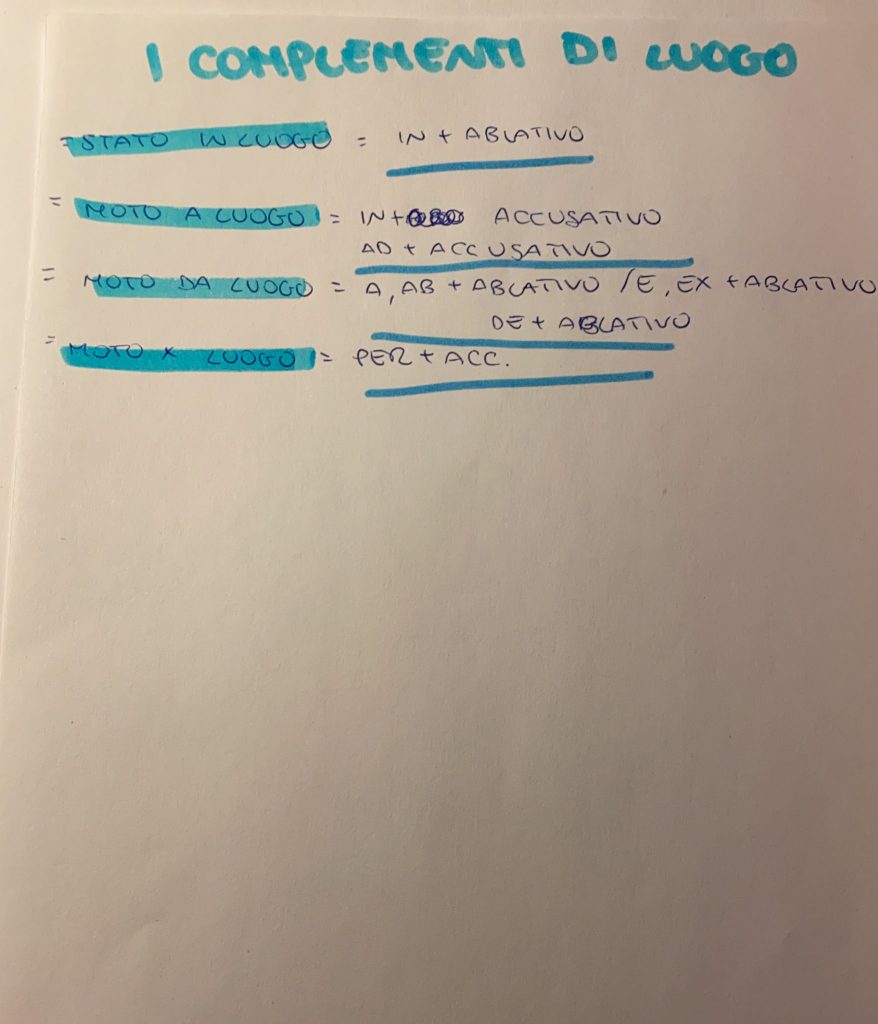 I COMPLEMENTI DI LUOGO
= STATO IN LUOGO = IN + ABLATIVO
= MOTO A LUOGO = IN + ACCUSATIVO
AD + ACCUSATIVO
= MOTO DA LUOGO = A, AB + ABLATIVO / E, EX + ABLATIVO
DE + ABLATIVO
= MOTO X LUOGO = PER + ACC.